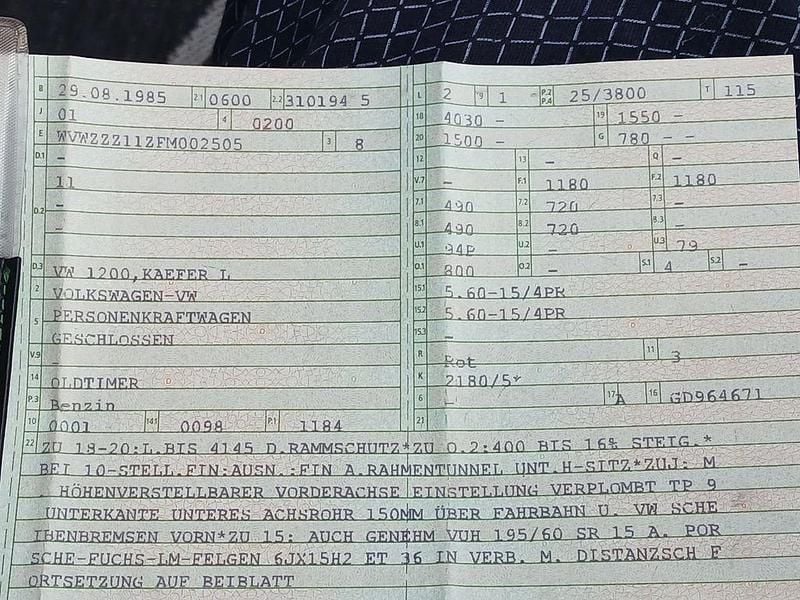 B 29.08.1985 2.1 0600 2.2 310194 5
J 01 4 0200
E WVWZZZ11ZFM002505 3 8
D.1 -
11
-
D.2 -
-
D.3 VW 1200,KAEFER L
2 VOLKSWAGEN-VW
5 PERSONENKRAFTWAGEN
GESCHLOSSEN
V.9 -
14 OLDTIMER
P.3 Benzin
10 0001 14.1 0098 P.1 1184
L 2 9 1 P.2 P.4 25/3800 T 115
18 4030 - 19 1550 -
20 1500 - G 780 - -
12 - 13 - Q -
V.7 - F.1 1180 F.2 1180
7.1 490 7.2 720 7.3 -
8.1 490 8.2 720 8.3 -
U.1 94P U.2 - U.3 79
O.1 800 O.2 - S.1 4 S.2 -
15.1 5.60-15/4PR
15.2 5.60-15/4PR
15.3 -
R Rot 11 3
K 2180/5*
6 - 17 A 16 GD964671
21
22 ZU 18-20:L.BIS 4145 D.RAMMSCHUTZ*ZU O.2:400 BIS 16% STEIG.*
BEI 10-STELL.FIN:AUSN.:FIN A.RAHMENTUNNEL UNT.H-SITZ*ZUJ: M
. HÖHENVERSTELLBARER VORDERACHSE EINSTELLUNG VERPLOMBT TP 9
UNTERKANTE UNTERES ACHSROHR 150MM ÜBER FAHRBAHN U. VW SCHE
IBENBREMSEN VORN*ZU 15: AUCH GENEHM VUH 195/60 SR 15 A. POR
SCHE-FUCHS-LM-FELGEN 6JX15H2 ET 36 IN VERB. M. DISTANZSCH F
ORTSETZUNG AUF BEIBLATT